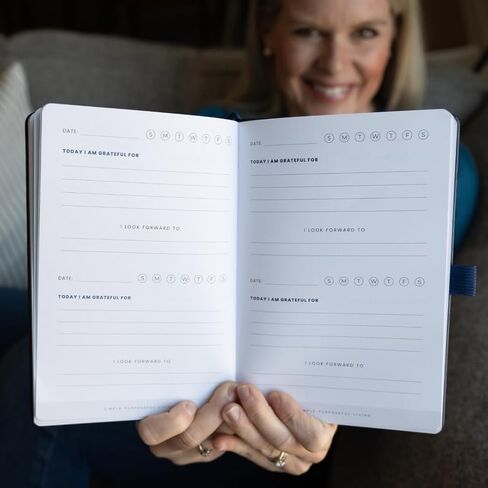 DATE: S M T W T F S
TODAY I AM GRATEFUL FOR
I LOOK FORWARD TO
DATE: S M T W T F S
TODAY I AM GRATEFUL FOR
I LOOK FORWARD TO
SIMPLE PURPOSEFUL
DATE: S M T W T F S
TODAY I AM GRATEFUL FOR
I LOOK FORWARD TO
DATE: S M T W T F S
TODAY I AM GRATEFUL FOR
I LOOK FORWARD TO
SIMPLE PURPOSEFUL LIVING